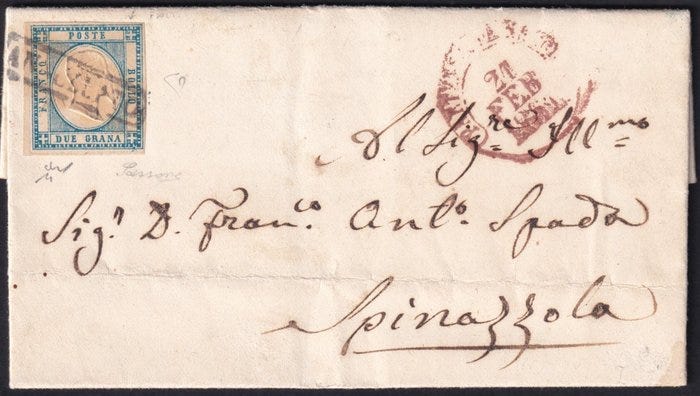 POSTE
FRANCO
BOLLO
DUE GRANA
21
FEB
Al Sig.re Ill.mo
Sig.r D. Fran.co Ant.o Spada
Spinazzola